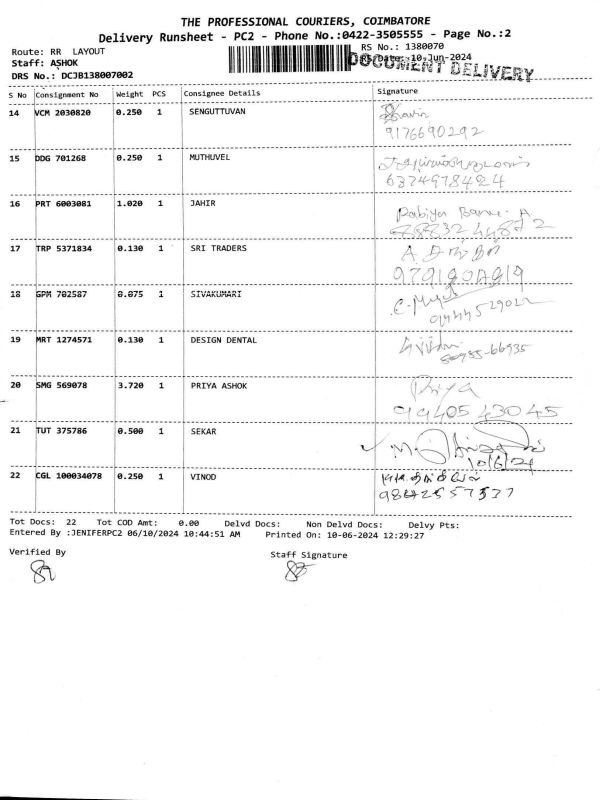 THE PROFESSIONAL COURIERS, COIMBATORE
Delivery Runsheet - PC2 - Phone No.:0422-3505555 - Page No.:2
Route: RR LAYOUT
RS No.: 1380070
Staff: ASHOK
RS Date: 10-Jun-2024
DOCUMENT DELIVERY
DRS No.: DCJB138007002
S No Consignment No Weight PCS Consignee Details Signature
14 VCM 2030820 0.250 1 SENGUTTUVAN
9176690292
15 DDG 701268 0.250 1 MUTHUVEL
6374978424
16 PRT 6003081 1.020 1 JAHIR
Banu. A.
17 TRP 5371834 0.130 1 SRI TRADERS
18 GPM 702587 0.075 1 SIVAKUMARI
19 MRT 1274571 0.130 1 DESIGN DENTAL
80955-66935
20 SMG 569078 3.720 1 PRIYA ASHOK Priya
99405 43045
21 TUT 375786 0.500 1 SEKAR
10/6/24
22 CGL 100034078 0.250 1 VINOD
Tot Docs: 22 Tot COD Amt: 0.00 Delvd Docs: Non Delvd Docs: Delvy Pts:
Entered By :JENIFERPC2 06/10/2024 10:44:51 AM Printed On: 10-06-2024 12:29:27
Verified By Staff Signature